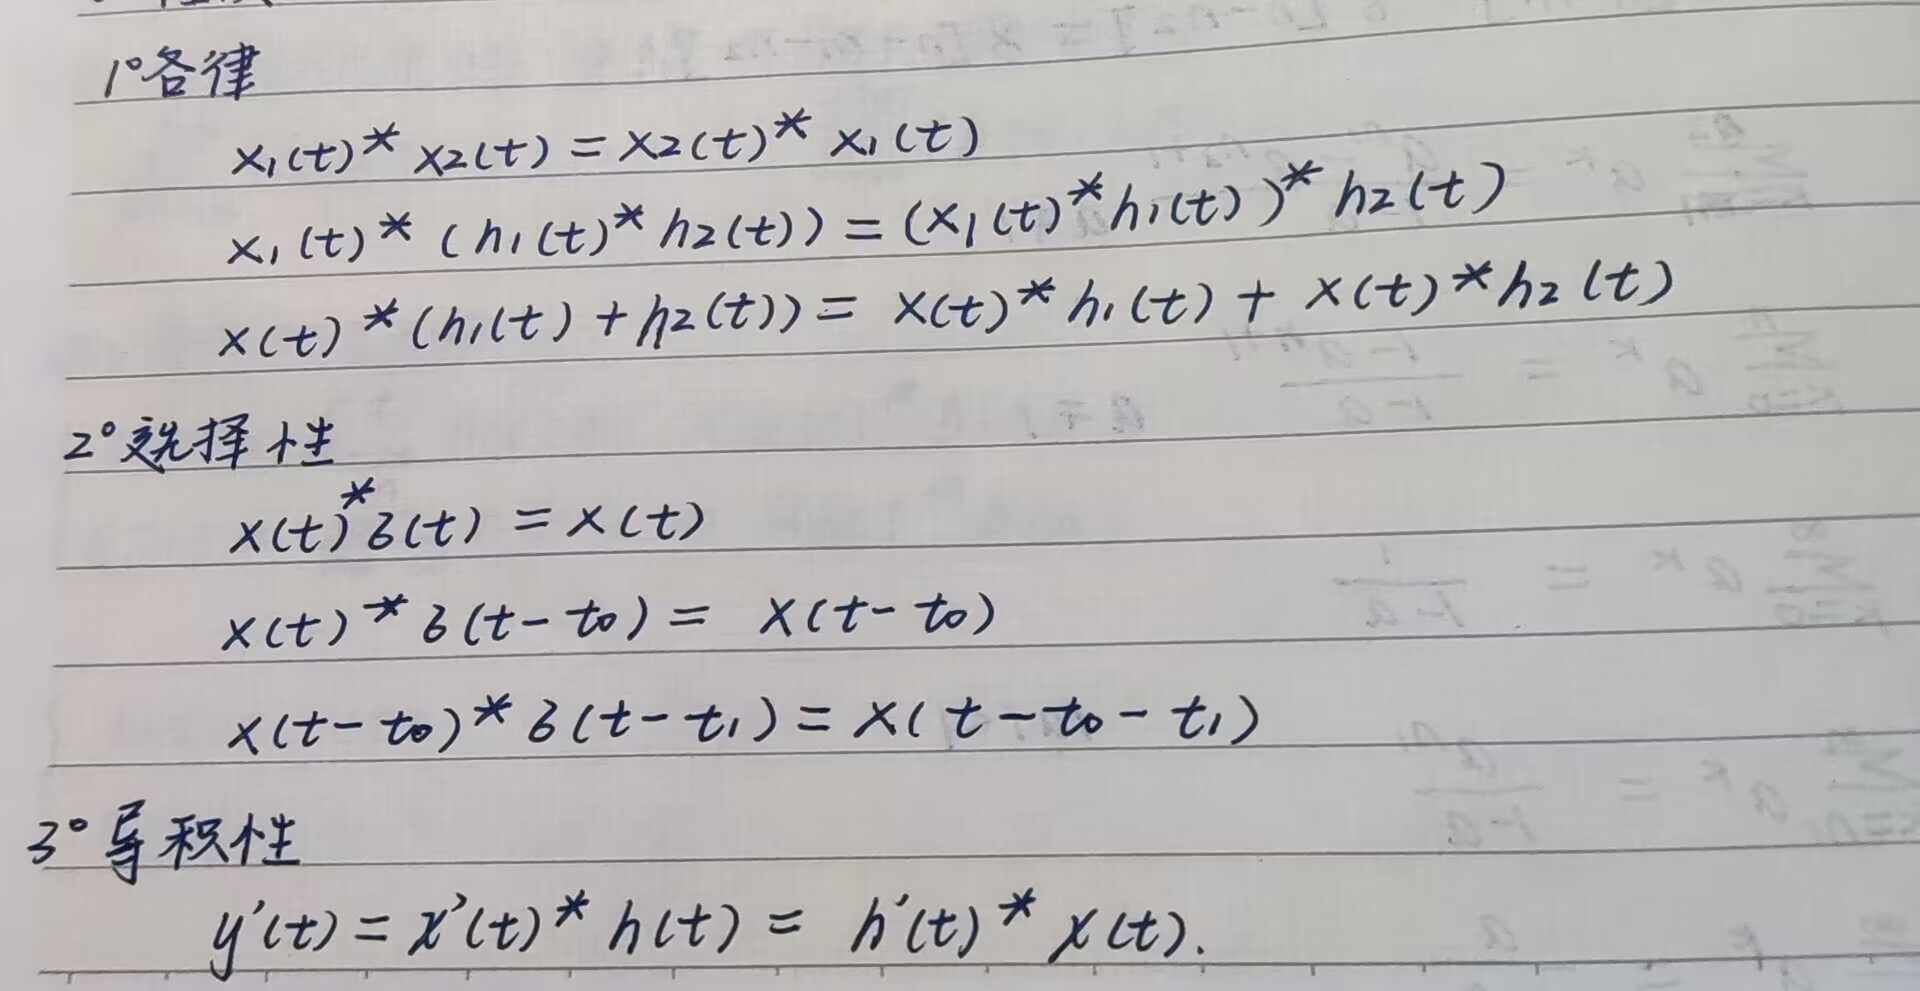 1°各律
x₁(t)*x₂(t)=x₂(t)*x₁(t)
x₁(t)*(h₁(t)*h₂(t))=(x₁(t)*h₁(t))*h₂(t)
x(t)*(h₁(t)+h₂(t))=x(t)*h₁(t)+x(t)*h₂(t)
2°选择性
x(t)*δ(t)=x(t)
x(t)*δ(t-t₀)=x(t-t₀)
x(t-t₀)*δ(t-t₁)=x(t-t₀-t₁)
3°导积性
y'(t)=x'(t)*h(t)=h'(t)*x(t).